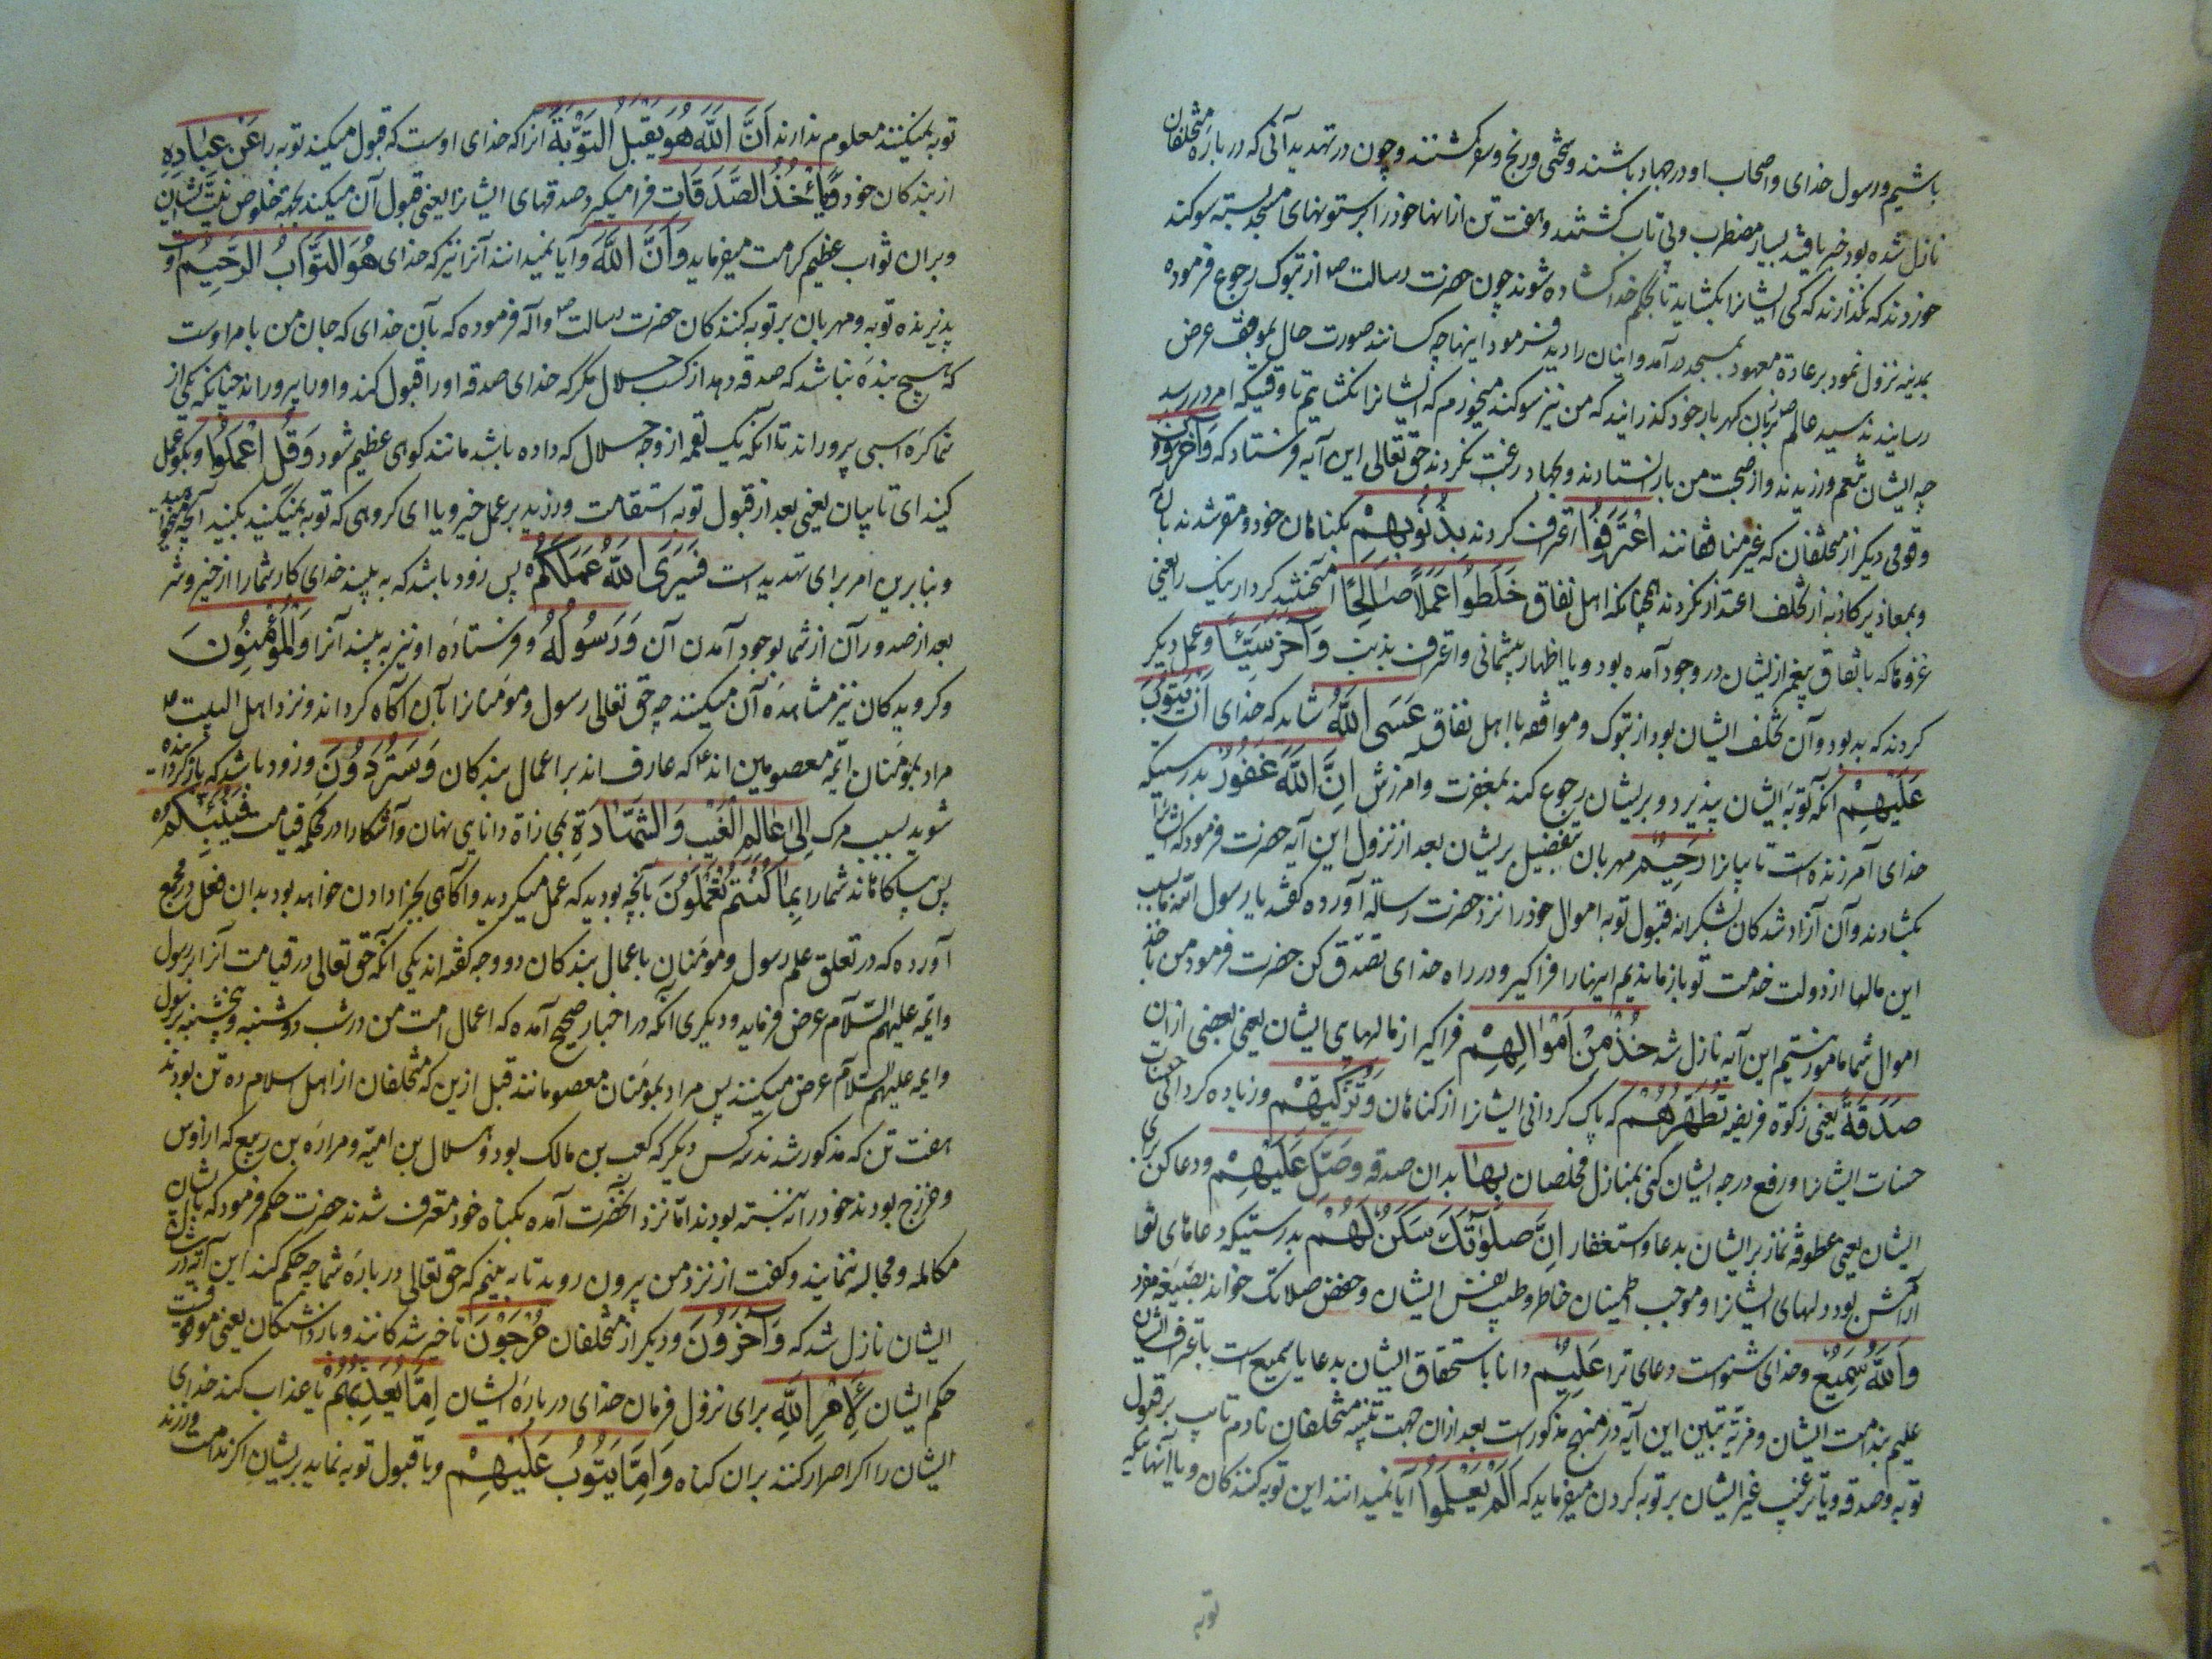 باشیم و رسول خدای و اصحاب او در جهاد باشند و سختی و رنج و سفر کشند و چون در تهدید آنی که در باره متخلفان
نازل شده بود خبر یافتند بسیار مضطرب و بی تاب گشتند و هفت تن از اینها خود را بر ستونهای مسجد بسته سوکند
خوردند که نکذارند که کسی ایشانرا بکشاید تا بحکم خدا کشاده شوند چون حضرت رسالت ص از تبوک رجوع فرموده
بمدینه نزول نمود بر عادة معهود بمسجد در آمد و اینان را دید فرمود اینها چه کسانند صورت حال بموقف عرض
رسانیدند سید عالم ص بزبان کهربار خود کذرانید که من نیز سوکند میخورم که ایشانرا نکشایم تا وقتیکه امر در رسد
چه ایشان تنعم ورزیدند و از صحبت من باز ایستادند و بجهاد رغبت نکردند حق تعالی این آیه فرستاد که وَآخَرُونَ
و قومی دیکر از متخلفان که غیر منافقانند اعْتَرَفُوا اعتراف کردند بِذُنُوبِهِمْ بکناهان خود و مقر شدند بآن
و بمعاذیر کاذبه از تخلف اعتذار نکردند همچنانکه اهل نفاق خَلَطُوا عَمَلًا صَالِحًا آمیختند کردار نیک را یعنی
غزوها که باتفاق پیغمبر از ایشان در وجود آمده بود و یا اظهار پشیمانی و اعتراف بذنب وَآخَرَ سَيِّئًا و عمل دیکر
کردند که بد بود و آن تخلف ایشان بود از تبوک و موافقه با اهل نفاق عَسَى اللَّهُ شاید که خدای أَنْ يَتُوبَ
عَلَيْهِمْ آنکه توبهٔ ایشان بپذیرد و بریشان رجوع کند بمغفرت و آمرزش إِنَّ اللَّهَ غَفُورٌ بدرستیکه
خدای آمرزنده است تایبانرا رَحِيمٌ مهربان بتفضیل بریشان بعد از نزول این آیه حضرت فرمود که ایشانرا
بکشادند و آن آزاد شدکان بشکرانه قبول توبه اموال خود را نزد حضرت رسالة آورده کفتند یا رسول الله ما بسبب
این مالها از دولت خدمت تو باز ماندیم اینها را فراکیر و در راه خدای تصدق کن حضرت فرمود من باخذ
اموال شما مامور نیستم این آیه نازل شد خُذْ مِنْ أَمْوَالِهِمْ فراکیر از مالهای ایشان یعنی بعضی از آن
صَدَقَةً یعنی زکوة فریضه تُطَهِّرُهُمْ که پاک کردانی ایشانرا از کناهان وَتُزَكِّيهِمْ و زیاده کردانی حسنات
حسنات ایشانرا و رفع درجه ایشان کنی بمنازل مخلصان بِهَا بدان صدقه وَصَلِّ عَلَيْهِمْ و دعا کن برای
ایشان یعنی عطوفه نماز بر ایشان بدعا و استغفار إِنَّ صَلَوٰتَكَ سَكَنٌ لَهُمْ بدرستیکه دعاهای تو
آرامش بود دلهای ایشانرا و موجب اطمینان خاطر و طیب نفس ایشان و حفص صلاتک خواند بصیغه مفرد
وَاللَّهُ سَمِيعٌ و خدای شنواست دعای ترا عَلِيمٌ دانا باستحقاق ایشان بدعا یا سمیع است باعتراف ایشان
علیم بندامت ایشان و مرتبه تبیین این آیه در منهج مذکور است بعد از آن جهت تنبیه متخلفان نادم تایب بر قبول
توبه و صدقه و یا ترغیب غیر ایشان بر توبه کردن میفرماید که أَلَمْ يَعْلَمُوا آیا نمیدانند این توبه کنندکان و یا آنهائیکه
توبه
توبه نمیکنند معلوم ندارند أَنَّ اللَّهَ هُوَ يَقْبَلُ التَّوْبَةَ آنرا که خدای اوست که قبول میکند توبه را عَنْ عِبَادِهِ
از بندکان خود وَيَأْخُذُ الصَّدَقَاتِ فرا میکیرد صدقهای ایشانرا یعنی قبول آن میکند بجهة خلوص نیت ایشان
و بر آن ثواب عظیم کرامت میفرماید وَأَنَّ اللَّهَ و آیا نمیدانند آنرا نیز که خدای هُوَ التَّوَّابُ الرَّحِيمُ اوست
پذیرنده توبه و مهربان بر توبه کنندکان حضرت رسالت ص و آله فرموده که بآن خدای که جان من بامر اوست
که هیچ بندهٔ نباشد که صدقه دهد از کسب حلال مکر که خدای صدقه او را قبول کند و او را پروراند چنانکه یکی از
شما کرهٔ اسبی پروراند تا آنکه یک لقمه از وجه حلال که داده باشد مانند کوهی عظیم شود وَقُلِ اعْمَلُوا و بکو عمل
کنید ای تایبان یعنی بعد از قبول توبه استقامت ورزید بر عمل خیر و یا ای کروهی که توبه نمیکنید بکنید آنچه میخواهید
و بنابرین امر برای تهدید است فَسَيَرَى اللَّهُ عَمَلَكُمْ پس زود باشد که به بیند خدای کار شما را از خیر و شر
بعد از صدور آن از شما بوجود آمدن آن وَرَسُولُهُ و فرستادهٔ او نیز به بیند آنرا وَالْمُؤْمِنُونَ
و کرویدکان نیز مشاهدهٔ آن میکنند چه حق تعالی رسول و مومنانرا بآن آکاه کرداند و نزد اهل البیت ع
مراد بمومنان ائمه معصومین اند که عارف اند بر اعمال بندکان وَسَتُرَدُّونَ و زود باشد که باز کردانیده
شوید بسبب مرک إِلَىٰ عَالِمِ الْغَيْبِ وَالشَّهَادَةِ بمجازاة دانای نهان و آشکارا در محکمه قیامت فَيُنَبِّئُكُمْ
پس بیاکاهاند شما را بِمَا كُنْتُمْ تَعْمَلُونَ بآنچه بودید که عمل میکردید و آکاهی بجزا دادن خواهد بود بدان فعل در مجمع
آورده که در تعلق علم رسول و مومنان باعمال بندکان دو وجه کفته اند یکی آنکه حق تعالی در قیامت آنرا برسول
و ائمه علیهم السلام عرض فرماید و دیکری آنکه در اخبار صحیح آمده که اعمال امت من در شب دوشنبه و پنجشنبه بر رسول
و ایمه علیهم السلام عرض میکنند پس مراد بمومنان معصومانند قبل ازین که متخلفان از اهل اسلام ده تن بودند
هفت تن که مذکور شدند سه کس دیکر که کعب بن مالک بود و هلال بن امیه و مرارة بن ربیع که از اوس
و خزرج بودند خود را نه بسته بودند اما نزد آنحضرت آمده بکناه خود معترف شدند حضرت حکم فرمود که با ایشان
مکالمه و مجالسه ننمایند و کفت از نزد من بیرون روید تا به بینم که حق تعالی در بارهٔ شما چه حکم کند این آیه در شان
ایشان نازل شد که وَآخَرُونَ و دیکر از متخلفان مُرْجَوْنَ تاخیر شدکانند و بازداشتکان یعنی موقوفست
حکم ایشان لِأَمْرِ اللَّهِ برای نزول فرمان خدای در بارهٔ ایشان إِمَّا يُعَذِّبُهُمْ یا عذاب کند خدای
ایشان را اکر اصرار کنند بر آن کناه وَإِمَّا يَتُوبُ عَلَيْهِمْ و یا قبول توبه نماید بریشان اکر ندامت ورزند